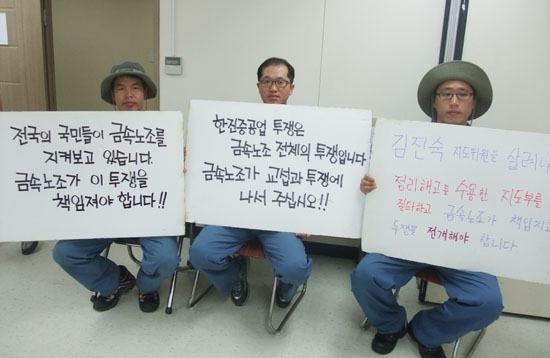 전국의 국민들이 금속노조를
지켜보고 있습니다.
금속노조가 이 투쟁을
책임져야 합니다!!
한진중공업 투쟁은
금속노조 전체의 투쟁입니다
금속노조가 교섭과 투쟁에
나서 주십시오!!
김진숙 지도위원을 살려야
정리해고를 수용한 지도부를
질타하고 금속노조가 책임지고
투쟁을 전개해야 합니다